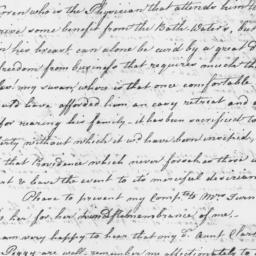 Green who is the Physician that attends him to
rive some benefit from the Bath Waters, but
in his breast can alone be cur'd by a great d
freedom from business that requires much th
swan, where is that once comfortable
have afforded him an easy retreat and a
for rearing his family. it has been sacrificed to
erty without which it wd. have been insipid,
that Providence which never forsakes those w
st & leave the event to its merciful decision
Please to present my Compts. to Mrs. Turn
her for her kind Remembrance of me.
am very happy to hear that my d. Aunt Clark
Peggy are well. remember me affectionately to